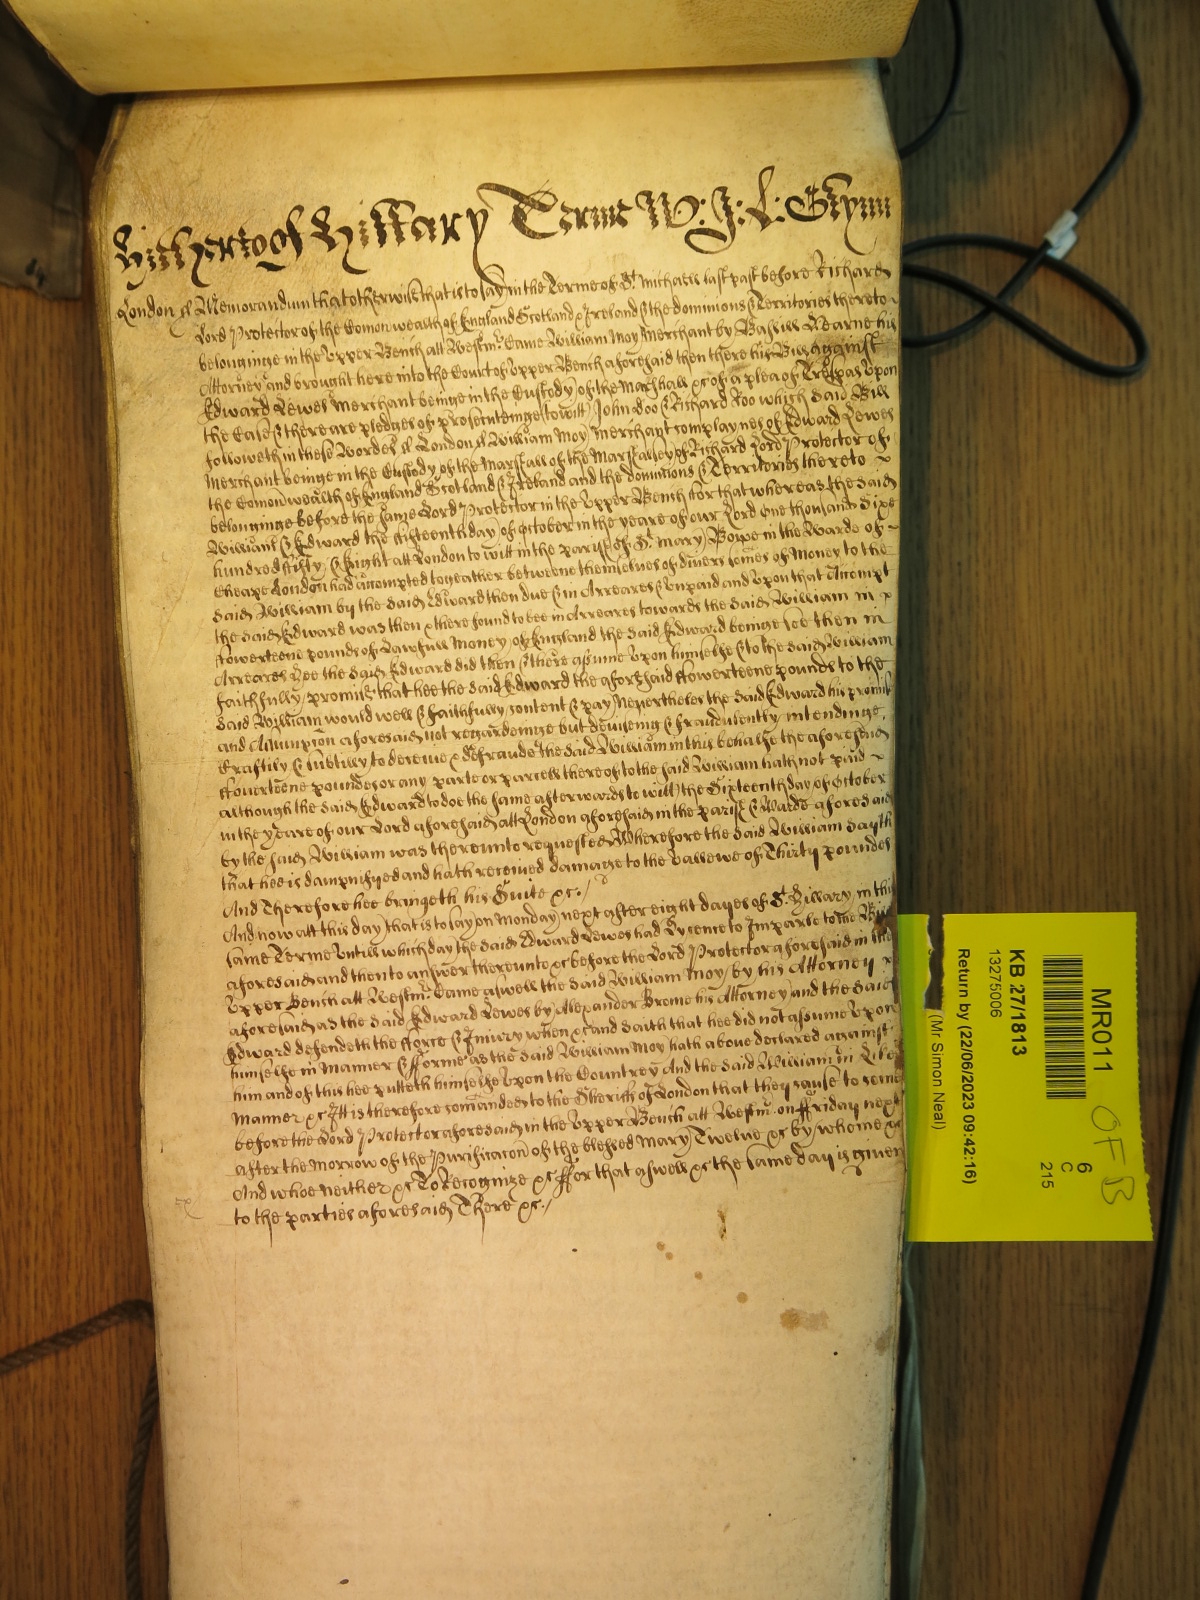 Hitherto of Hillary Terme W: J: L: Glynn
London ss Memorandum that otherwise that is to say in the Terme of St Michaell last past before Richard
Lord Protector of the Comon wealth of England Scotland & Ireland & the dominions & Territories thereto
belonginge in the Upper Bench att Westmr Came William Moy Merchant by Bassill Hearne his
Attorney and brought here into the Court of Upper Bench aforesaid then there his Bill against
Edward Lewes Merchant beinge in the Custody of the Marshall &c of a plea of Trespas upon
the Case & there are pledges of prosecuteinge (to witt) John Doo & Richard Roo which said Bill
followeth in these Wordes ss London ss William Moy Merchant complaynes of Edward Lewes
Merchant beinge in the Custody of the Marshall of the Marshalsey of Richard Lord Protector of
the Comon wealth of England Scotland & Ireland and the dominions & Territories thereto
belonginge before the same Lord Protector in the Upper Bench for that whereas the said
William & Edward the fifteenth day of October in the yeare of our Lord One thousand Sixe
hundred fifty & Eight att London to witt in the parish of St Mary Bowe in the Warde of
Cheape London had accompted togeather betweene themselves of divers somes of Money to the
said William by the said Edward then due & in Arreares & unpaid and upon that Accompt
the said Edward was then & there found to bee in Arreares towards the said William in
ffowerteene pounds of Lawfull Money of England the said Edward beinge soe then in
Arreares hee the said Edward did then & there assume upon himselfe & to the said William
faithfully promise that hee the said Edward the aforesaid ffowerteene pounds to the
said William would well & faithfully content & pay Neverthelesse the said Edward his promise
and Assumption aforesaid not regardeinge but deviseing & fraudulently intendinge
Craftily & subtilly to deceive & defraude the said William in this behalfe the aforesaid
ffourteene poundes or any parte or parcell thereof to the said William hath not paid
although the said Edward to doe the same afterwards to witt the Sixteenth day of October
in the yeare of our Lord aforesaid att London aforesaid in the parish & Warde aforesaid
by the said William was thereunto requested Wherefore the said William sayth
that hee is dampnifyed and hath received damage to the vallewe of Thirty poundes
And Therefore hee bringeth his Suite &c./
And now att this day that is to say on Monday next after eight dayes of St Hillary in this
same Terme Untill which day the said Edward Lewes had Lycence to Imparle to the Bill
aforesaid and then to answer thereunto &c before the Lord Protector aforesaid in the
Upper Bench att Westmr Came aswell the said William Moy by his Attorney
aforesaid as the said Edward Lewes by Alexander Brome his Attorney and the said
Edward defendeth the fforce & Iniury when &c and saith that hee did not assume upon
himselfe in Manner & fforme as the said William Moy hath above declared against
him and of this hee putteth himselfe upon the Countrey And the said William in like
manner &c Itt is therefore comanded to the Sherifs of London that they cause to come
before the Lord Protector aforesaid in the Upper Bench att Westmr on ffriday next
after the Morrow of the Purificacon of the blessed Mary Twelve &c by whome &c
And whoe neither &c To Recognize &c ffor that aswell &c the same day is given
to the parties aforesaid There &c./
MR011
KB 27/1813
13275006
Return by (22/06/2023 09:42:16)
(Mr Simon Neal)
6
C
215
OF B